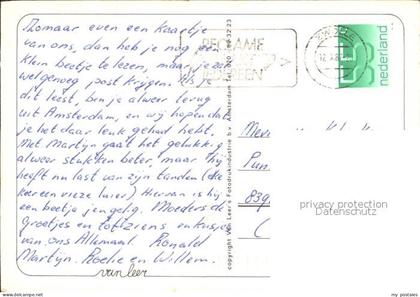 Zomaar even een kaartje
van ons, dan heb je nog een
klein beetje te lezen, maar je zal
wel genoeg post krijgen. Als je
dit leest, ben je alweer terug
uit Amsterdam, en wij hopen dat
je het daar leuk gehad hebt.
Met Martijn gaat het gelukkig
alweer stukken beter, maar hij
heeft nu last van zijn tanden (elke
keer een vieze luier) Hiervan is hij
een beetje jengelig. Moeders de
Groetjes en tot ziens en kusjes
van ons Allemaal. Ronald
Martijn. Roelie en Willem.
van leer
copyright Van Leer's Fotodrukindustrie b.v. Amsterdam
RECLAME
IEDEREEN
ZWOLLE
nederland
Mevr
839
privacy protection
Datenschutz